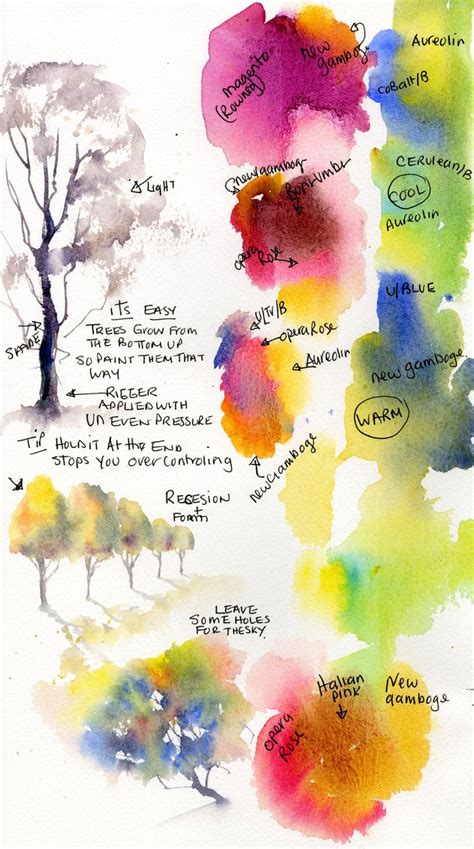 LIGHT
SHADE
ITS EASY
TREES GROW FROM
THE BOTTOM UP
SO PAINT THEM THAT
WAY
RIGGER
APPLIED WITH
UN EVEN PRESSURE
TIP HOLD IT AT THE END
STOPS YOU OVER CONTROLING
RECESION
+
FORM
LEAVE
SOME HOLES
FOR THE SKY
Magento
new
gamboge
Aureolin
CobAlt/B
newgambog
opera
Rose
CERulean/B
COOL
Aureolin
U/BLUE
opera Rose
Aureolin
newGamboge
new gamboge
WARM
opera
Rose
Italian
pink
New
gamboge